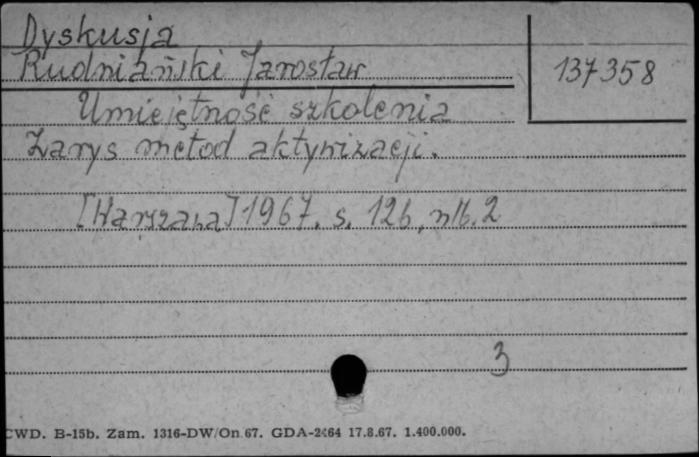 Dyskusja
Rudniański Jarosław
137358
Umiejętność szkolenia
Zarys metod aktywizacji.
[Warszawa] 1967. s. 126, nlb. 2
3
CWD. B-15b. Zam. 1316-DW/On 67. GDA-2464 17.8.67. 1.400.000.